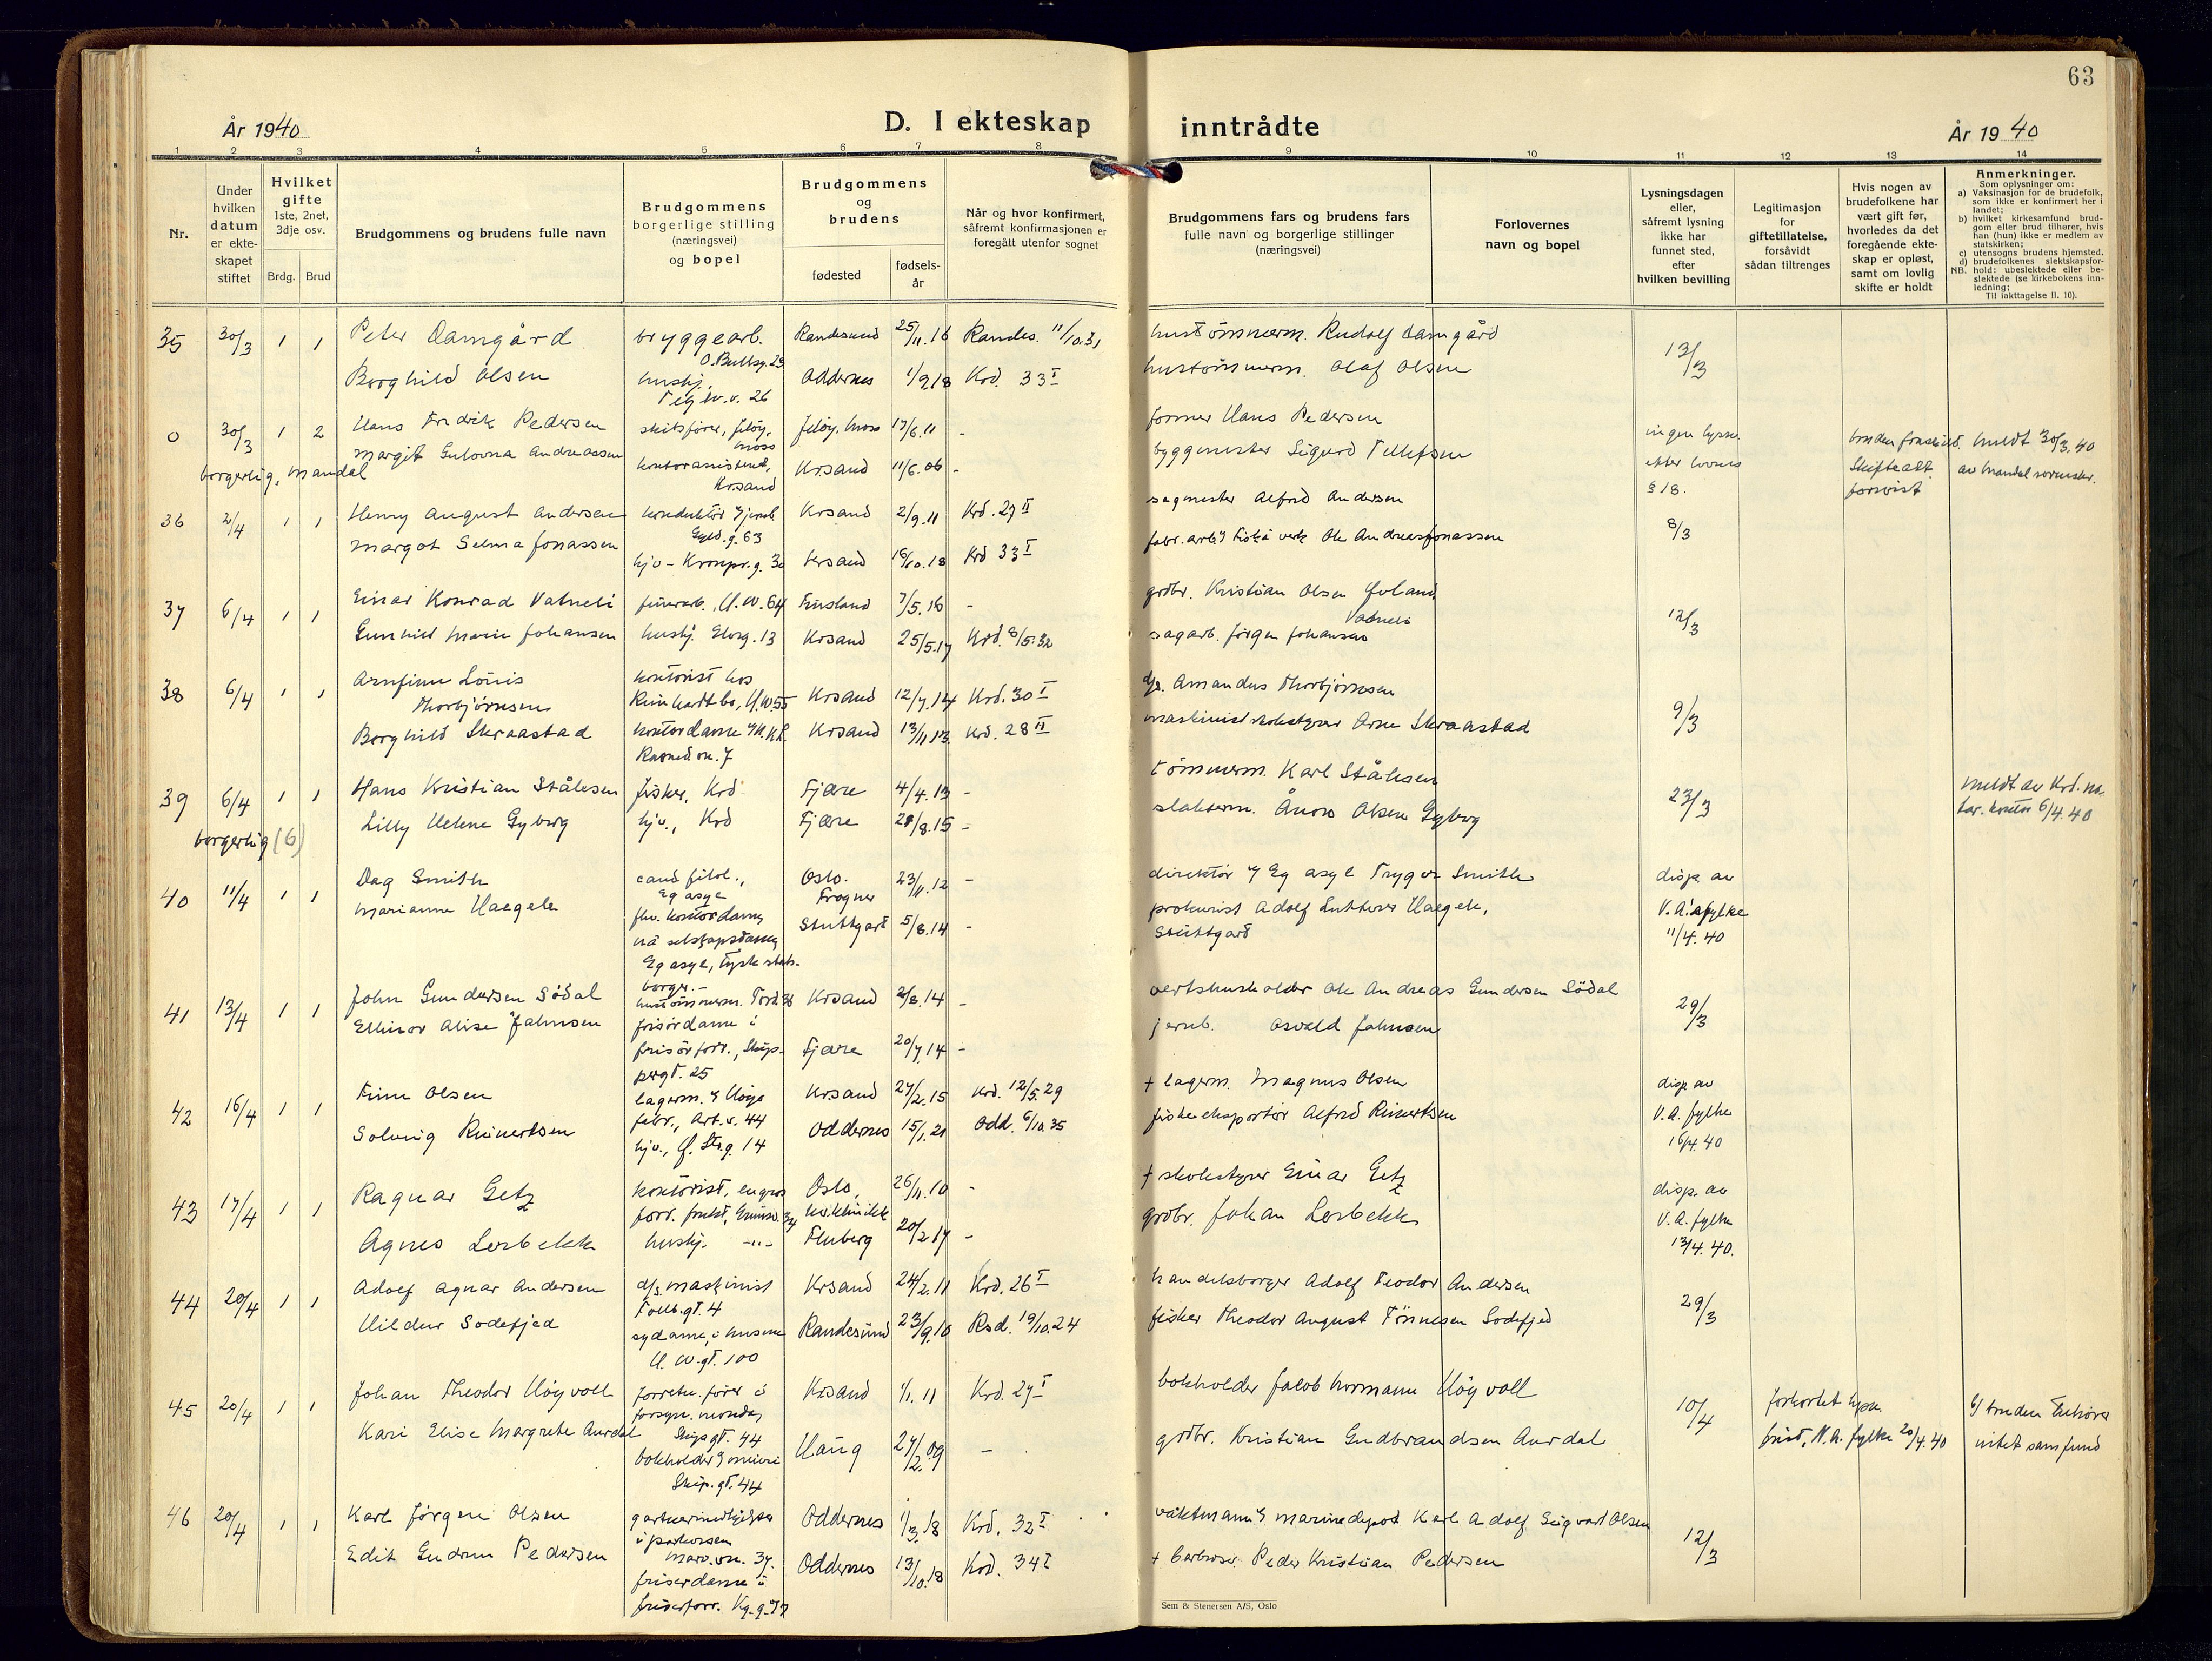 63
År 1940
D. I ekteskap
inntrådte
År 1940
1 2 3 4 5 6 7 8 9 10 11 12 13 14
Nr.
Under
hvilken
datum
er ekte-
skapet
stiftet
Hvilket
gifte
1ste, 2net,
3dje osv.
Brdg. Brud
Brudgommens og brudens fulle navn
Brudgommens
borgerlige stilling
(næringsvei)
og bopel
Brudgommens
og
brudens
fødested
fødsels-
år
Når og hvor konfirmert,
såfremt konfirmasjonen er
foregått utenfor sognet
Brudgommens fars og brudens fars
fulle navn og borgerlige stillinger
(næringsvei)
Forlovernes
navn og bopel
Lysningsdagen
eller,
såfremt lysning
ikke har
funnet sted,
efter
hvilken bevilling
Legitimasjon
for
giftetillatelse,
forsåvidt
sådan tiltrenges
Hvis nogen av
brudefolkene har
vært gift før,
hvorledes da det
foregående ekte-
skap er opløst,
samt om lovlig
skifte er holdt
Anmerkninger.
Som oplysninger om:
a) Vaksinasjon for de brudefolk,
som ikke er konfirmert her i
landet;
b) hvilket kirkesamfund brud-
gom eller brud tilhører, hvis
han (hun) ikke er medlem av
statskirken;
c) utensogns brudens hjemsted.
d) brudefolkenes slektskapsfor-
NB. hold: ubeslektede eller be-
slektede (se kirkebokens inn-
ledning;
Til iakttagelse II. 10).
35 30/3 1 1 Peter Damgård bryggearb. Randesund 25/11.16 Randes. 11/10.31 hustömmerm. Rudolf Damgård 13/3
O. Bullsg. 23
Borghild Olsen hushj. Oddernes 1/9.18 Krd. 33 I hustömmerm. Olaf Olsen
0 30/3 1 2 Hans Fredrik Pedersen skibsfører, Jeløy, Moss Jeløy, Moss 17/6.11 - former Hans Pedersen
Margit Andreassen kontorassistent, Krsand Krsand 11/6.06 - byggmester Sigurd Tellefsen
borgerlig, Mandal
ingen lysn.
efter lovens
§ 18.
bruden fraskilt.
Skifteatt.
forevist
meldt 30/3.40
av Mandal sorenskr.
36 2/4 1 1 Henry August Andersen Krsand 2/9.11 Krd. 27 II sagmester Alfred Andersen 8/3
Margot Selma Jonassen hjv - Kronpr.g. 30 Krsand 18/10.18 Krd 33 I fabr. arb. Fiskå verk Ole Andreas Jonassen
37 6/4 1 1 Einar Konrad Vatneli Finsland 7/5.16 - grdbr. Kristian Olsen Vatneli 12/3
Gunhild Marie Johansen hushj. Elvg. 13 Krsand 25/5.17 Krd. 8/5.32 sagarb. Jørgen Johansen
38 6/4 1 1 Arnfinn Louis kontorist hos
Thorbjörnsen Krsand 12/7.14 Krd. 30 I Amandus Thorbjörnsen 9/3
Borghild Skraastad kontordame Krsand 13/11.13. Krd. 28 II maskinistskolestyrer Arne Skraastad
39 6/4 1 1 Hans Kristian Stålesen fisker, Krd Fjære 4/4.13 - tömmerm. Karl Stålesen 23/3
Lilly Helene Gyberg hjv., Krd Fjære 28/8.15 - slakterm. Olsen Gyberg
borgerlig (6)
meldt av Krd. no-
tar. kontor 6/4.40
40 11/4 1 1 Dag Smith cand filol., Eg asyl Oslo. Frogner 23/11.12 - direktör Eg asyl Trygve Smith
Marianne Haegele fhv. kontordame Stuttgart 5/8.14 - prokurist Adolf Haegele,
nå selskapsdame Stuttgart
Eg asyl, tysk stats-
borger.-
disp. av
V.A. fylke
11/4.40
41 13/4 1 1 John Gundersen Södal hustömmerm. Krsand 2/8.14 - vertshusholder Ole Andreas Gundersen Södal 29/3
Ellinor Alise Jahnsen frisördame i Fjære 20/7.14 - jernb. Osvald Jahnsen
frisörforr., Skip-
pergt. 25
42 16/4 1 1 Finn Olsen lagerm. Krsand 27/2.15 Krd. 12/5.29 + lagerm. Magnus Olsen
fabr., Art.v. 44
Solveig Reinertsen Oddernes 15/1.21 Odd. 6/10.35 fiskeeksportör Alfred Reinertsen
disp av
V.A. fylke
16/4.40
43 17/4 1 1 Ragnar Getz kontorist, engros Oslo, 26/11.10 - + skolestyrer Einar Getz
Agnes Lerbekk hushj. -"- Fluberg 20/2.17 - grdbr. Johan Lerbekk
disp. av
V.A. fylke
13/4.40.
44 20/4 1 1 Adolf Agnar Andersen d/s. maskinist Krsand 24/2.11 Krd. 26 I handelsborger Adolf Teodor Andersen 29/3
Tollb.gt. 4
Hildur Sodefjed sydame, i husene Randesund 23/9.10 Rsd. 19/10.24 fisker Theodor August Tönnesen Sodefjed
H.W.gt. 100
45 20/4 1 1 Johan Theodor Höyvoll Krsand 1/1.11 Krd. 27 I bokholder Jakob Hermann Höyvoll 10/4
Skipsgt. 44
Kari Elise Margrete Aurdal bokholder Haug 27/2.09 - grdbr. Kristian Gudbrandsen Aurdal
Skip.gt. 44
forkortet lysn.
frist, V.A. fylke 20/4.40
bruden tilhører
intet samfund
46 20/4 1 1 Karl Jörgen Olsen Oddernes 1/3.18 Krd. 32 I vaktmann marinedepot Karl Adolf Sigvart Olsen 12/3
Edit Gudrun Pedersen frisördame i Oddernes 13/10.18 Krd. 34 I + Peder Kristian Pedersen
Sem & Stenersen A/S, Oslo